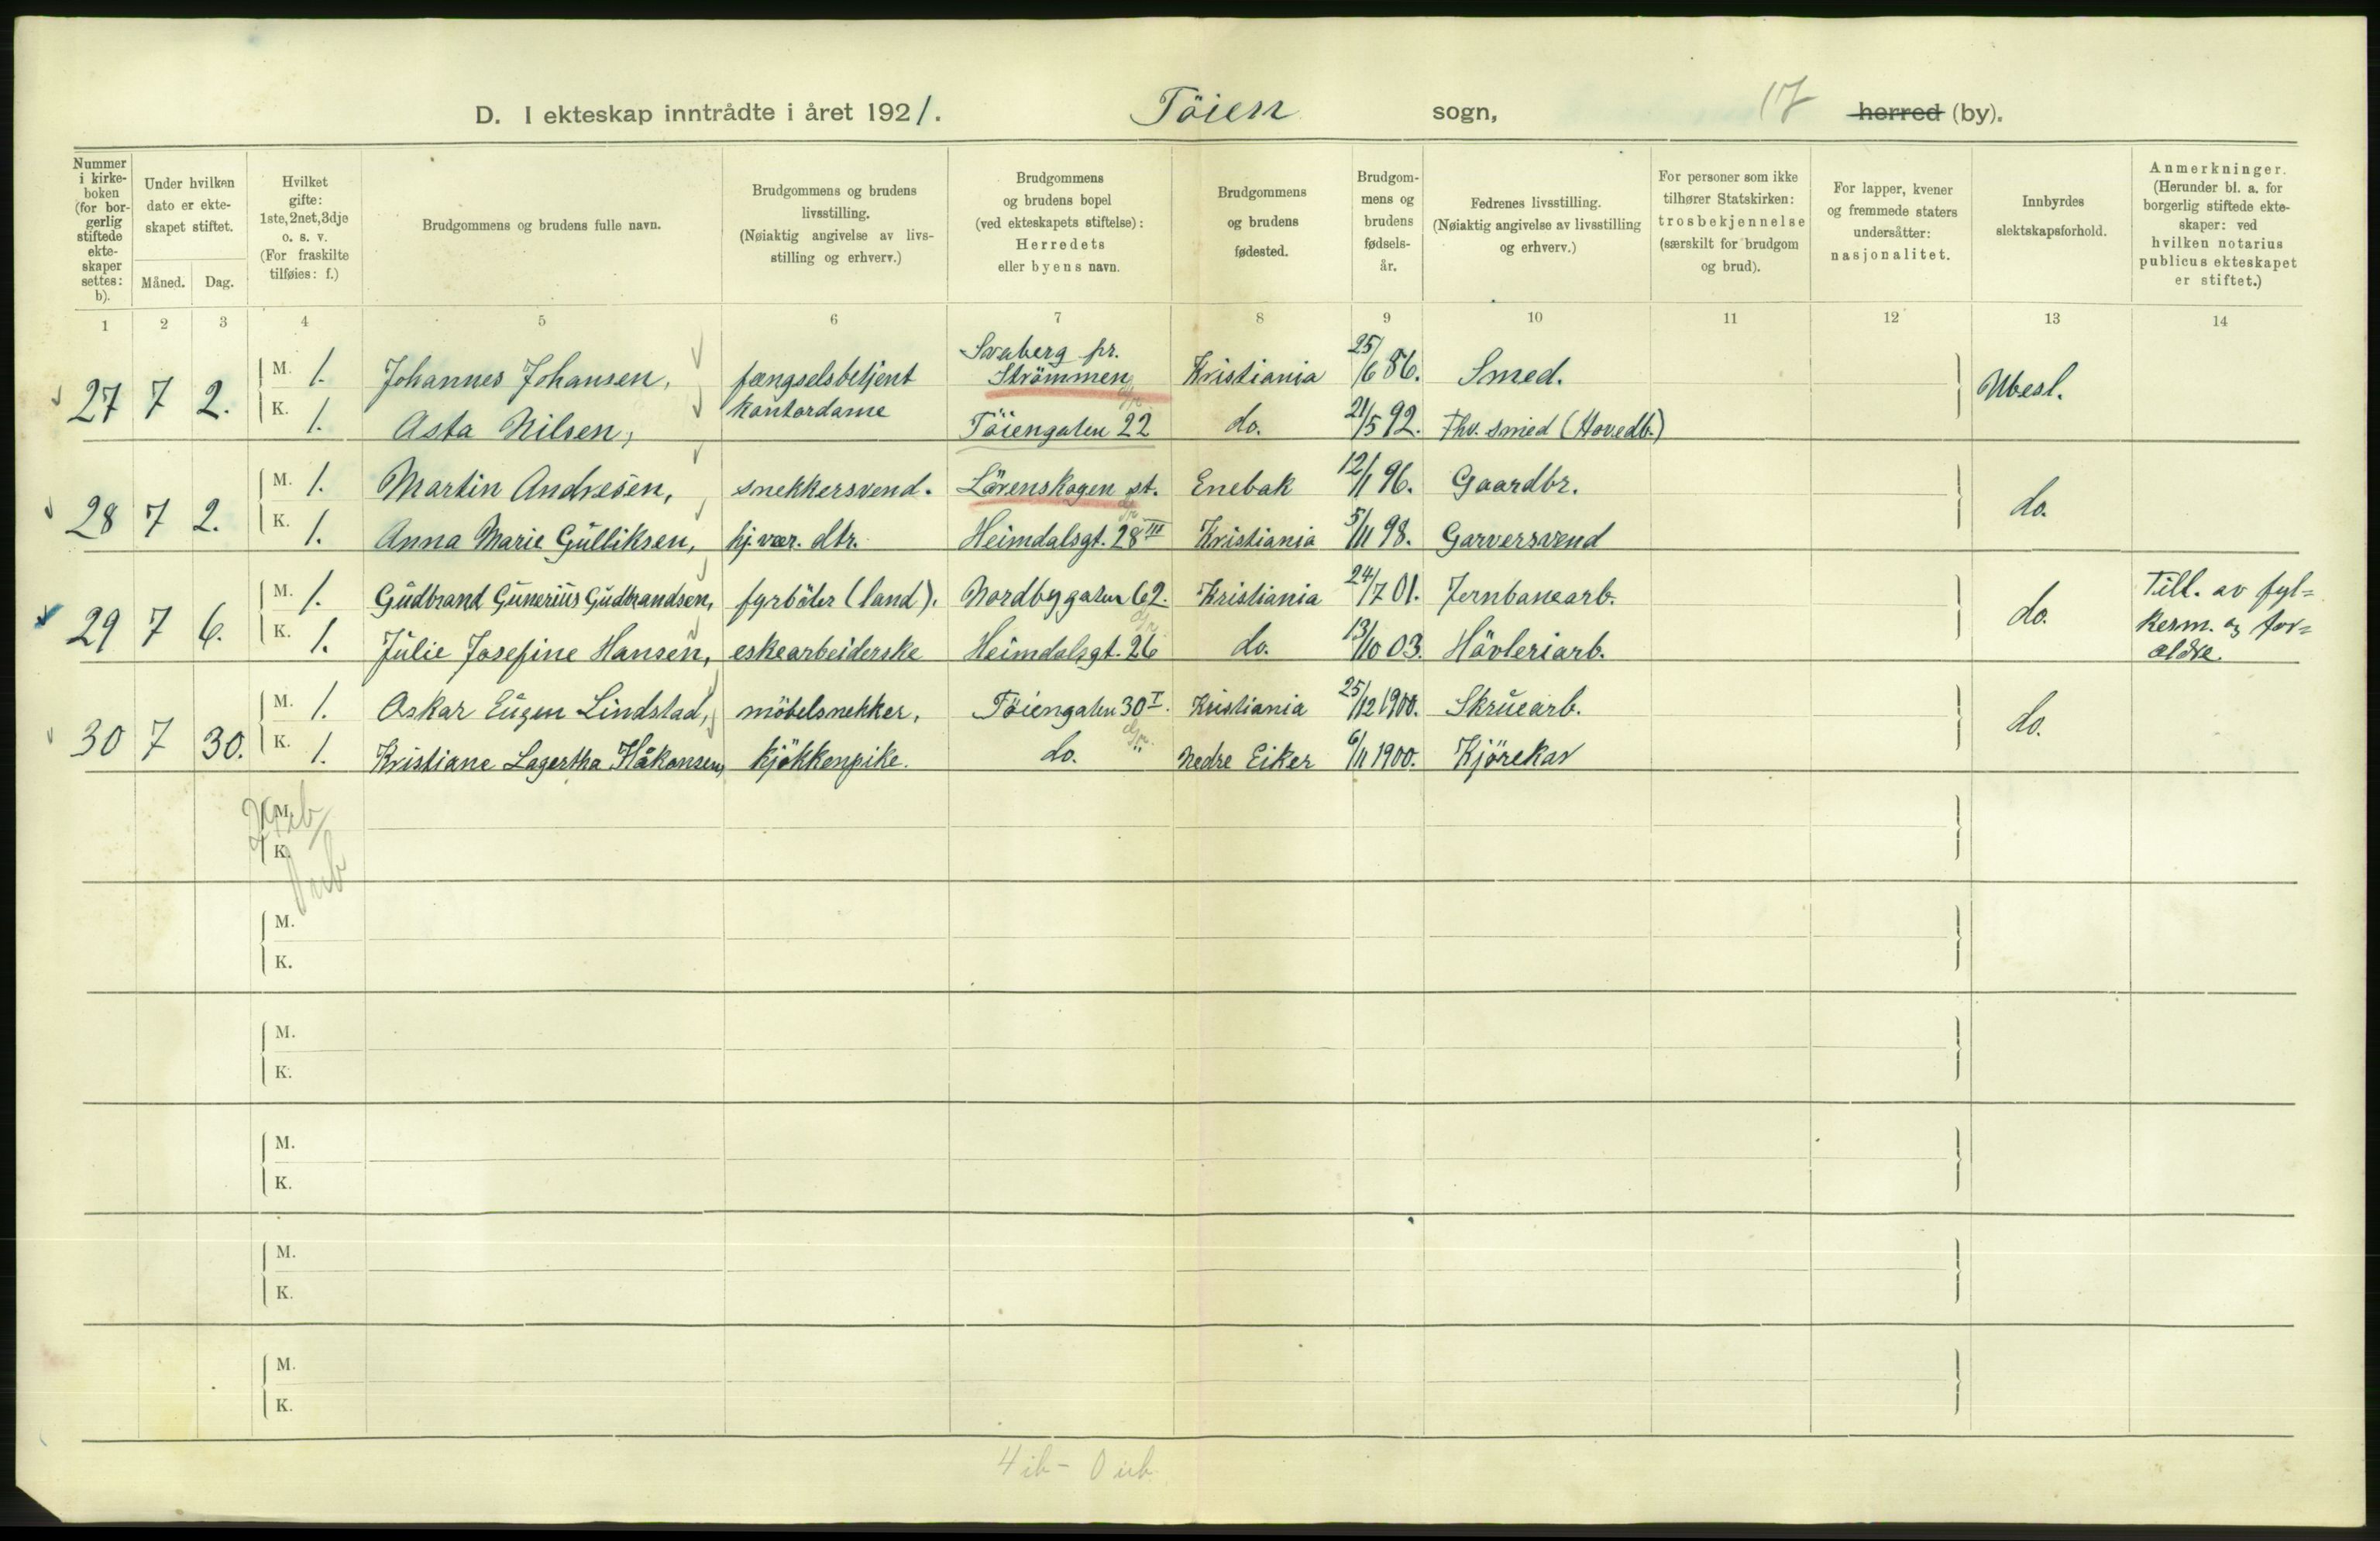 D. I ekteskap inntrådte i året 1921. Töien sogn, 17 herred (by).
Nummer i kirkeboken (for borgerlig stiftede ekteskaper settes: b).
Under hvilken dato er ekteskapet stiftet.
Måned. Dag.
Hvilket gifte: 1ste, 2net, 3dje o. s. v. (For fraskilte tilføies: f.)
Brudgommens og brudens fulle navn.
Brudgommens og brudens livsstilling. (Nøiaktig angivelse av livsstilling og erhverv.)
Brudgommens og brudens bopel (ved ekteskapets stiftelse): Herredets eller byens navn.
Brudgommens og brudens fødested.
Brudgommens og brudens fødselsår.
Fedrenes livsstilling. (Nøiaktig angivelse av livsstilling og erhverv.)
For personer som ikke tilhører Statskirken: trosbekjennelse (særskilt for brudgom og brud).
For lapper, kvener og fremmede staters undersåtter: nasjonalitet.
Innbyrdes slektskapsforhold.
Anmerkninger. (Herunder bl. a. for borgerlig stiftede ekteskaper: ved hvilken notarius publicus ekteskapet er stiftet.)
1 2 3 4 5 6 7 8 9 10 11 12 13 14
27 7 2. M. 1. Johannes Johansen, fængselsbetjent Svaberg pr. Strömmen Kristiania 25/6 86. Smed. Ubesl.
K. 1. Asta Nilsen, kontordame Töiengaten 22 do. 21/5 92. Fhv. smed (Hovedb.)
28 7 2. M. 1. Martin Andresen, snekkersvend. Lörenskogen st. Enebak 12/1 96. Gaardbr. do.
K. 1. Anna Marie Gulliksen, hj. vær. dtr. Heimdalsgt. 28 III Kristiania 5/11 98. Garversvend
29 7 6. M. 1. Gudbrand Gunerius Gudbrandsen, fyrböter (land). Nordbygaten 62. Kristiania 24/7 01. Jernbanearb. do. Till. av fyl=
K. 1. Julie Josefine Hansen, eskearbeiderske Heimdalsgt. 26 do. 13/10 03. Hövleriarb. kesm. og for=
ældre.
30 7 30. M. 1. Oskar Eugen Lindstad, möbelsnekker, Töiengaten 30 I. Kristiania 25/12 1900. Skruearb. do.
K. 1. Kristiane Lagertha Håkonsen, kjökkenpike. do. Nedre Eiker 6/11 1900. Kjörekar
M.
K.
M.
K.
M.
K.
M.
K.
M.
K.
M.
K.
4 ib - 0 ub